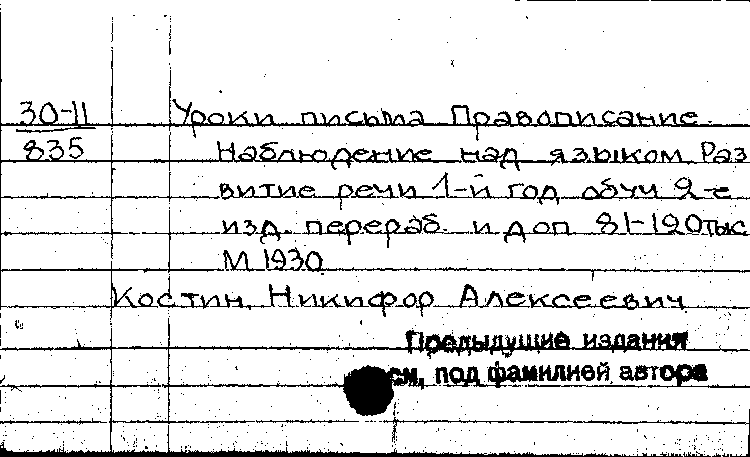 30-11 Уроки письма Правописание.
835 Наблюдение над языком Раз
витие речи 1-й год обуч 2-е
изд. перераб. и доп 81-120тыс
М 1930
Костин, Никифор Алексеевич
Предыдущие издания
см, под фамилией автора